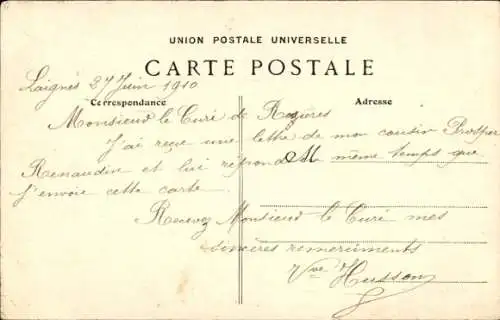 UNION POSTALE UNIVERSELLE
CARTE POSTALE
Laignes 27 Juin 1910
Correspondance
Adresse
Monsieur le Curé de Rozières
J'ai reçue une lettre de mon cousin Prosper
Renaudin et lui répond même temps que
j'envoie cette carte.
Recevez Monsieur le Curé mes
sincères remerciments
Vve Husson